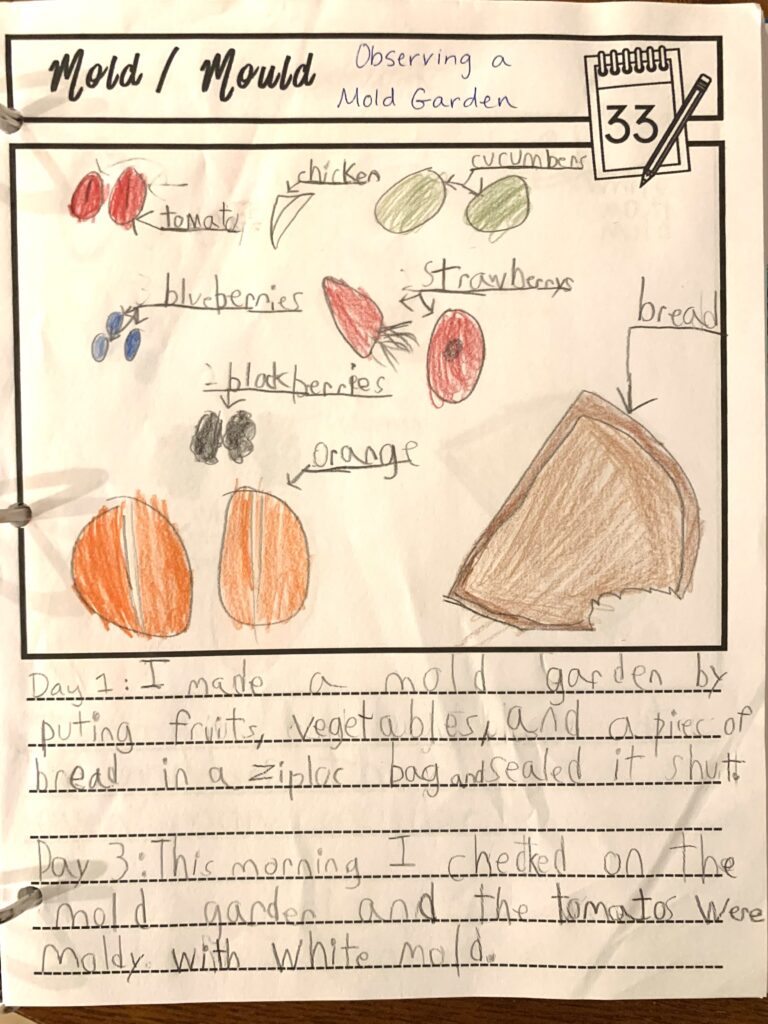 Mold / Mould
Observing a
Mold Garden
33
tomato
chicken
cucumbers
blueberries
strawberrys
bread
blackberries
orange
Day 1: I made a mold garden by
puting fruits, vegetables, and a piec of
bread in a ziploc bag and sealed it shut.
Day 3: This morning I checked on the
mold garden and the tomatos were
moldy with white mold.